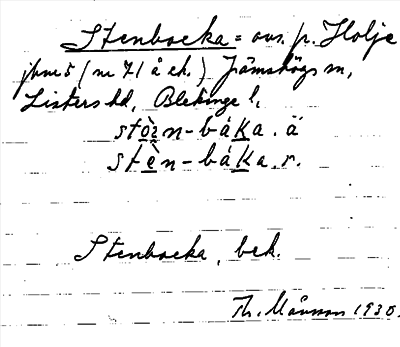 Stenbocka = avs. p. Holje
jbnr 5 (nr 71 å ek.) Jämshögs sn,
Listers hd, Blekinge l,
stòzn-båka. ä
stèn-båka. r.
Stenbocka, bek.
Th. Månsson 1930.